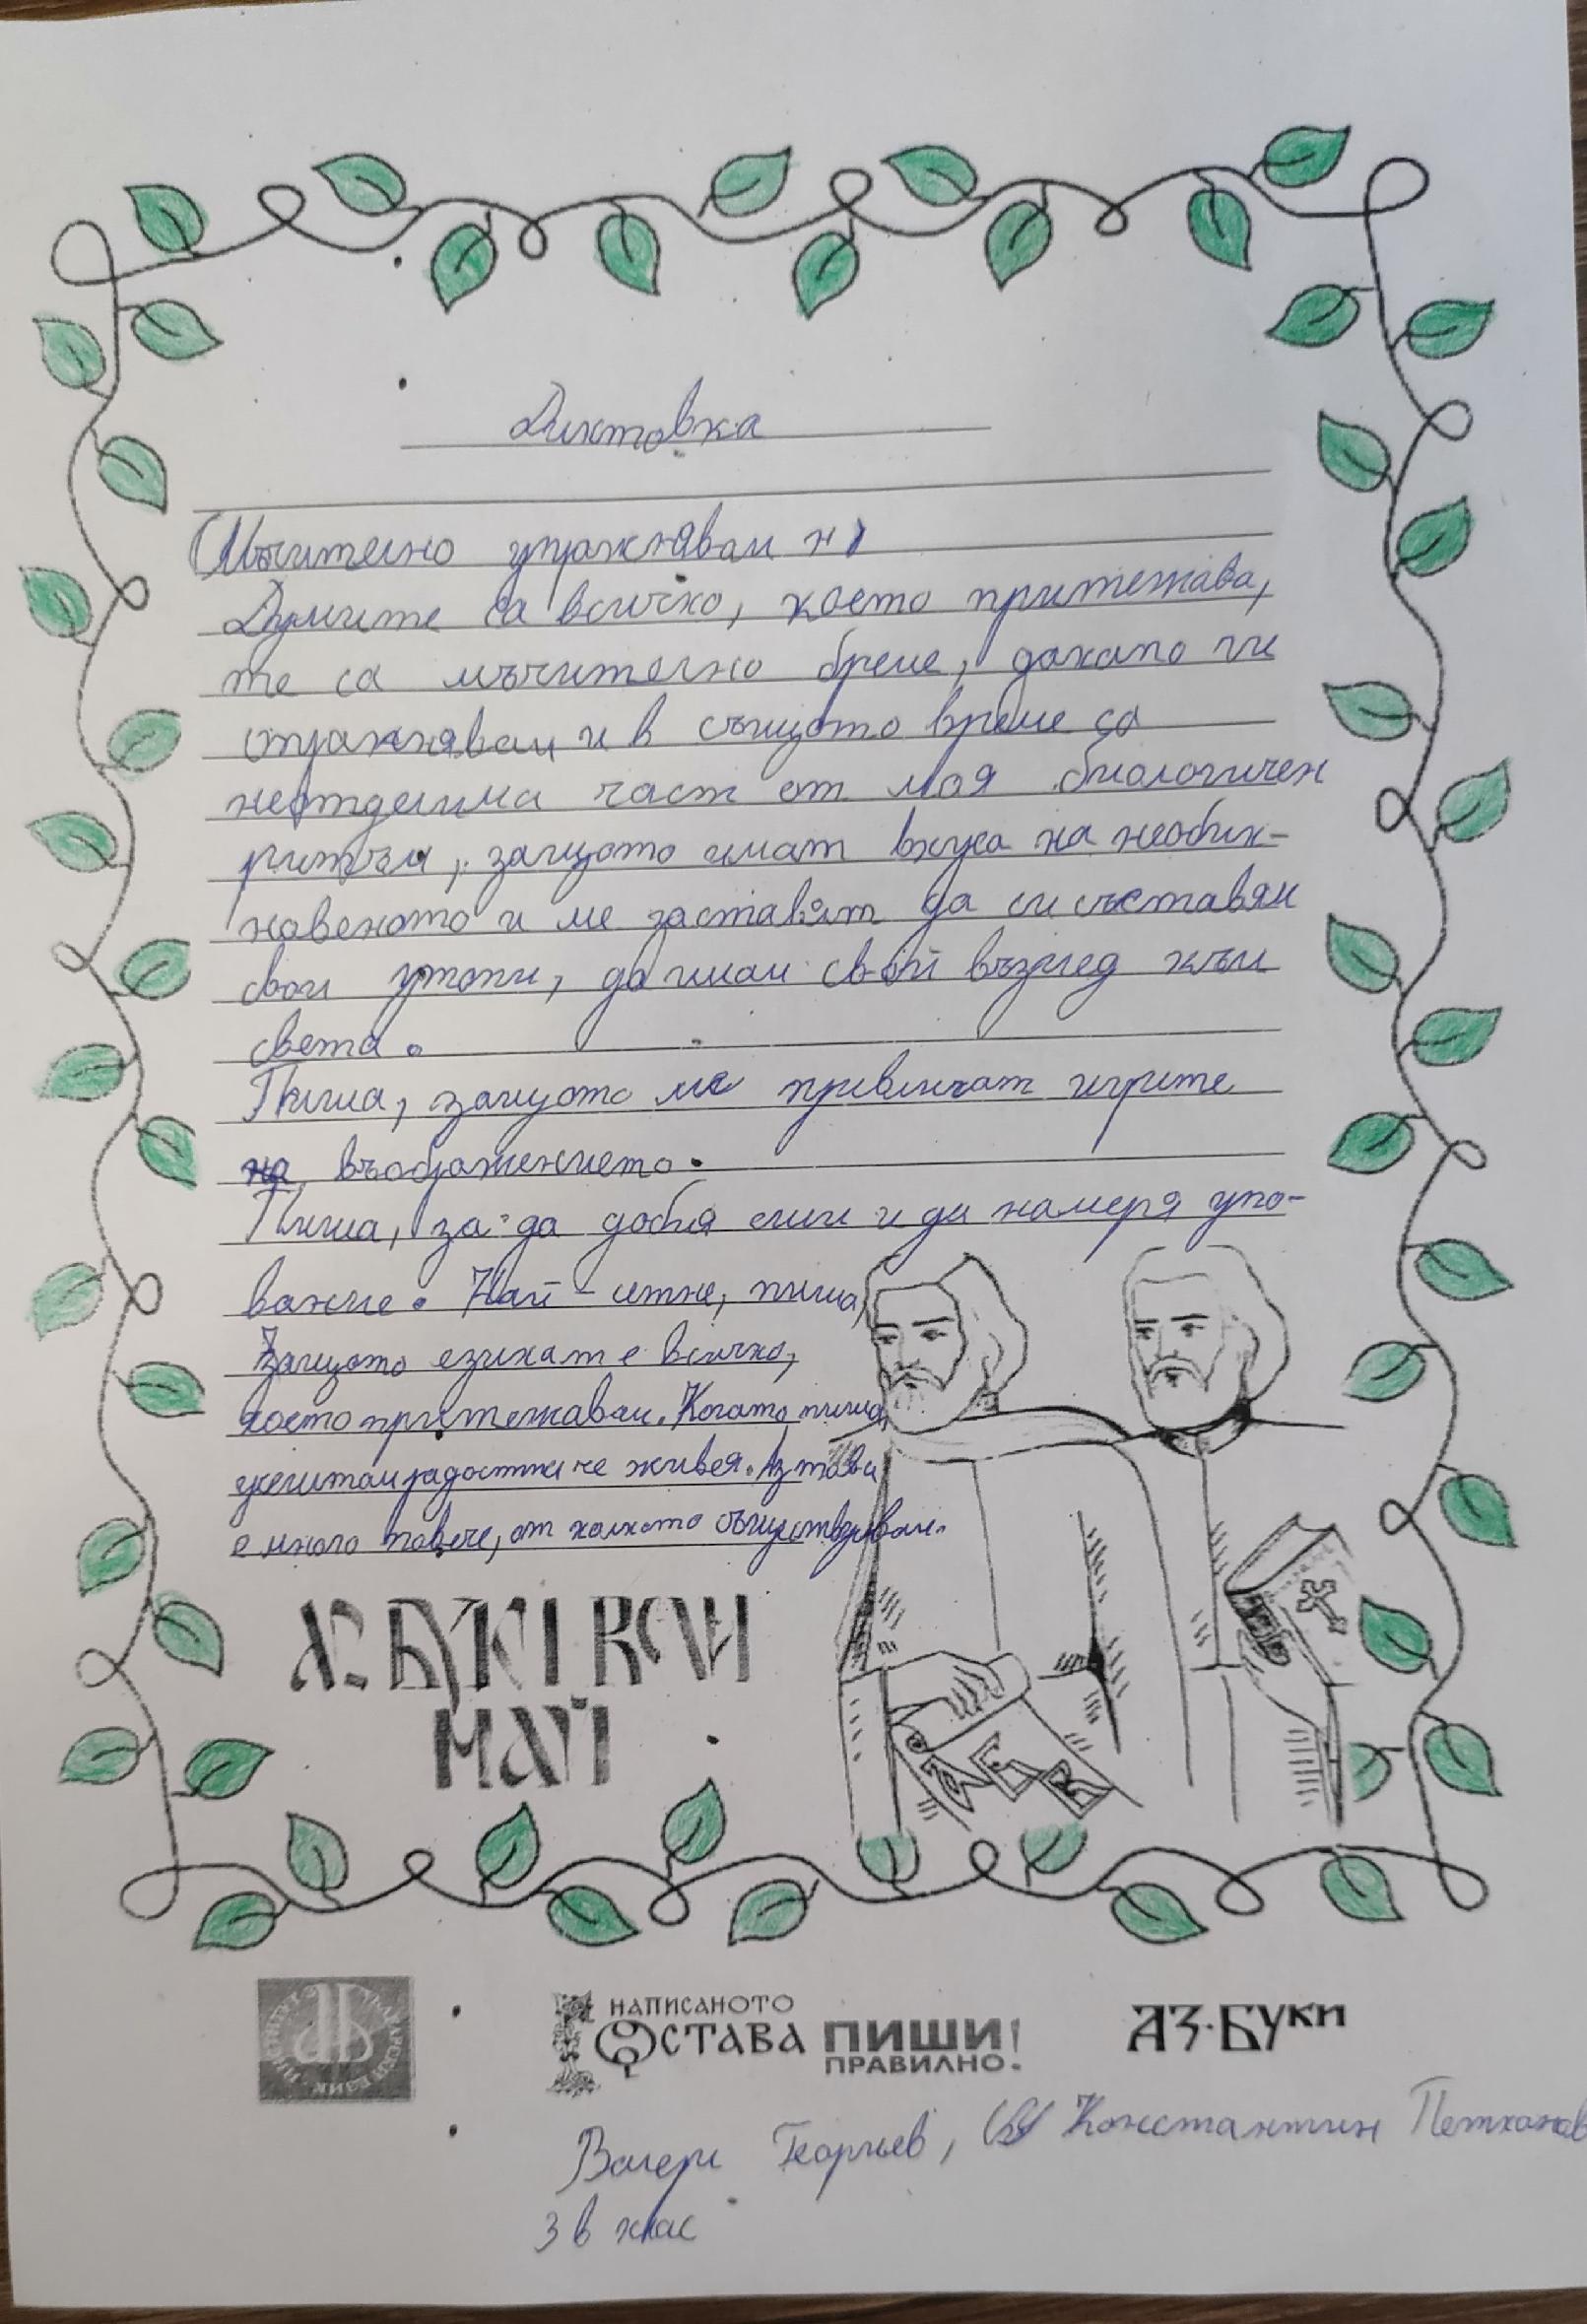 Диктовка
Мъчително упражнявам н
Думите са всичко, което притежава,
те са мъчително бреме, докато ги
упражнявам и в същото време са
неотделима част от моя биологичен
ритъм, защото имат вкуса на необик-
новеното и ме заставят да си съставям
свои утопи, да имам свой възглед към
света.
Пиша, защото ме привличат игрите
на въображението.
Пиша, за да добия сили и да намеря упо-
вание. Най-сетне, пиша,
Защото езикат е всичко,
което притежавам. Когато пиша,
усещам радостта че живея. Аз това
е много повече, от колкото съществувам.
АЗ БУКИ ВЕДИ
МАЙ
НАПИСАНОТО
ОСТАВА ПИШИ
ПРАВИЛНО!
АЗ·БУКИ
Валери Георгиев, СУ Константин Петканов
3 в клас